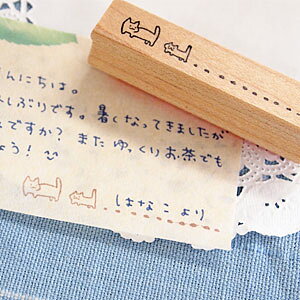 んにちは。
しぶりです。暑くなってきましたが
ですか? また ゆっくりお茶でも
ょう!
はなこ より